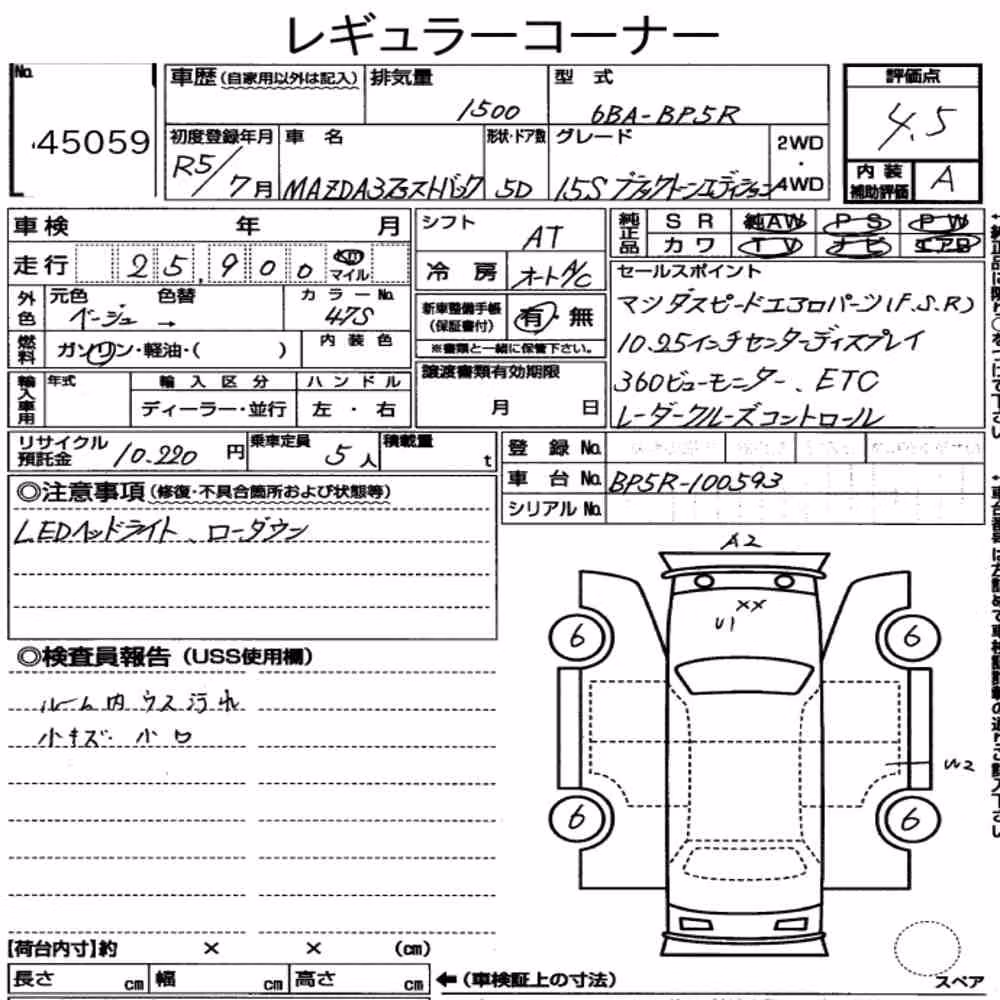 レギュラーコーナー
No.
45059
車歴(自家用以外は記入)
排気量
1500
型式
6BA-BP5R
評価点
4.5
初度登録年月
R5/7月
車名
MAZDA3ファストバック
形状・ドア数
5D
グレード
15S ブラックトーンエディション
2WD
・
4WD
内装
補助評価
A
車検 年 月
走行 25,900 Km マイル
外色
元色
ベージュ
色替
→
カラーNo.
47S
燃料
ガソリン・軽油・( )
内装色
輸入車用
年式
輸入区分
ディーラー・並行
ハンドル
左・右
シフト
AT
冷房
オートA/C
新車整備手帳
(保証書付)
有・無
※書類と一緒に保管下さい。
譲渡書類有効期限
月 日
純正品
SR 純AW PS PW
カワ TV ナビ エアB
セールスポイント
マツダスピードエアロパーツ(F.S.R)
10.25インチセンターディスプレイ
360ビューモニター、ETC
レーダークルーズコントロール
リサイクル
預託金
10.220円
乗車定員
5人
積載量
t
登録No.
車台No.
BP5R-100593
シリアルNo.
◎注意事項(修復・不具合箇所および状態等)
LEDヘッドライト、ローダウン
◎検査員報告(USS使用欄)
ルーム内ウス汚れ
小キズ 小口
A2
XX
U1
6
6
U2
6
6
スペア
[荷台内寸]約 × × (cm)
長さ cm 幅 cm 高さ cm
←(車検証上の寸法)